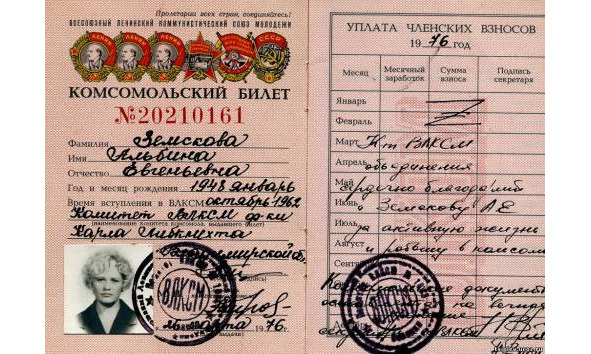 Пролетарии всех стран, соединяйтесь!
ВСЕСОЮЗНЫЙ ЛЕНИНСКИЙ КОММУНИСТИЧЕСКИЙ СОЮЗ МОЛОДЕЖИ
КОМСОМОЛЬСКИЙ БИЛЕТ
№20210161
Фамилия Земскова
Имя Альбина
Отчество Евгеньевна
Год и месяц рождения 1948 январь
Время вступления в ВЛКСМ октябрь 1962
Комитет ВЛКСМ ф-ки
(наименование комитета комсомола, выдавшего билет)
Карла Либкнехта
ВЛКСМ
марта 1976 г.
УПЛАТА ЧЛЕНСКИХ ВЗНОСОВ
1976 год
Месяц Месячный заработок Сумма взноса Подпись секретаря
Январь
Февраль
Март К-т ВЛКСМ
Апрель объединения
Май сердечно благодарит
Июнь Земскову АЕ
Июль за активную жизнь
Август и работу в комсомоле
ВЛКСМ